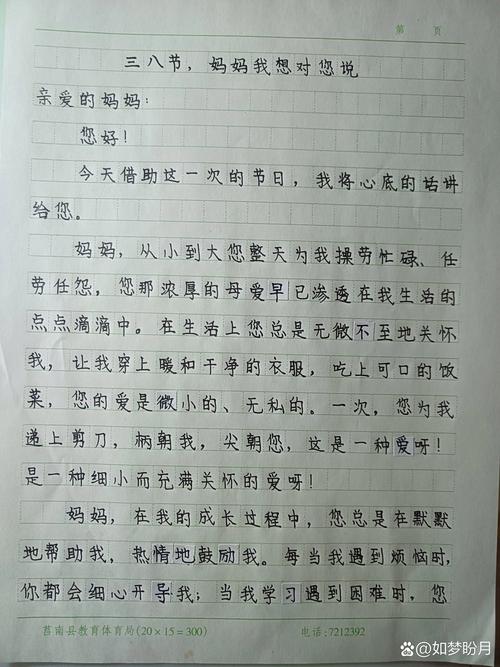 第 页
三八节，妈妈我想对您说
亲爱的妈妈：
您好！
今天借助这一次的节日，我将心底的话讲
给您。
妈妈，从小到大您整天为我操劳忙碌、任
劳任怨，您那浓厚的母爱早已渗透在我生活的
点点滴滴中。在生活上您总是无微不至地关怀
我，让我穿上暖和干净的衣服，吃上可口的饭
菜，您的爱是微小的、无私的。一次，您为我
递上剪刀，柄朝我，尖朝您，这是一种爱呀！
是一种细小而充满关怀的爱呀！
妈妈，在我的成长过程中，您总是在默默
地帮助我，热情地鼓励我。每当我遇到烦恼时，
你都会细心开导我；当我学习遇到困难时，您
莒南县教育体育局(20×15=300) 电话:7212392
@如梦盼月